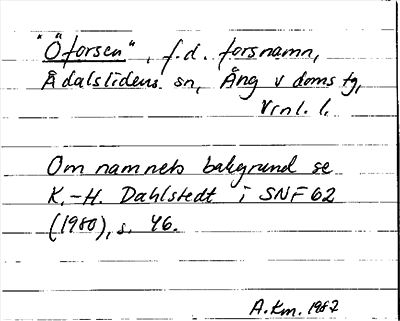 "Öforsen", f.d. forsnamn,
Ådalslidens sn, Ång v doms tg,
Vrnl. l.
Om namnets bakgrund se
K.-H. Dahlstedt i SNF 62
(1980), s. 46.
A.Km. 1987